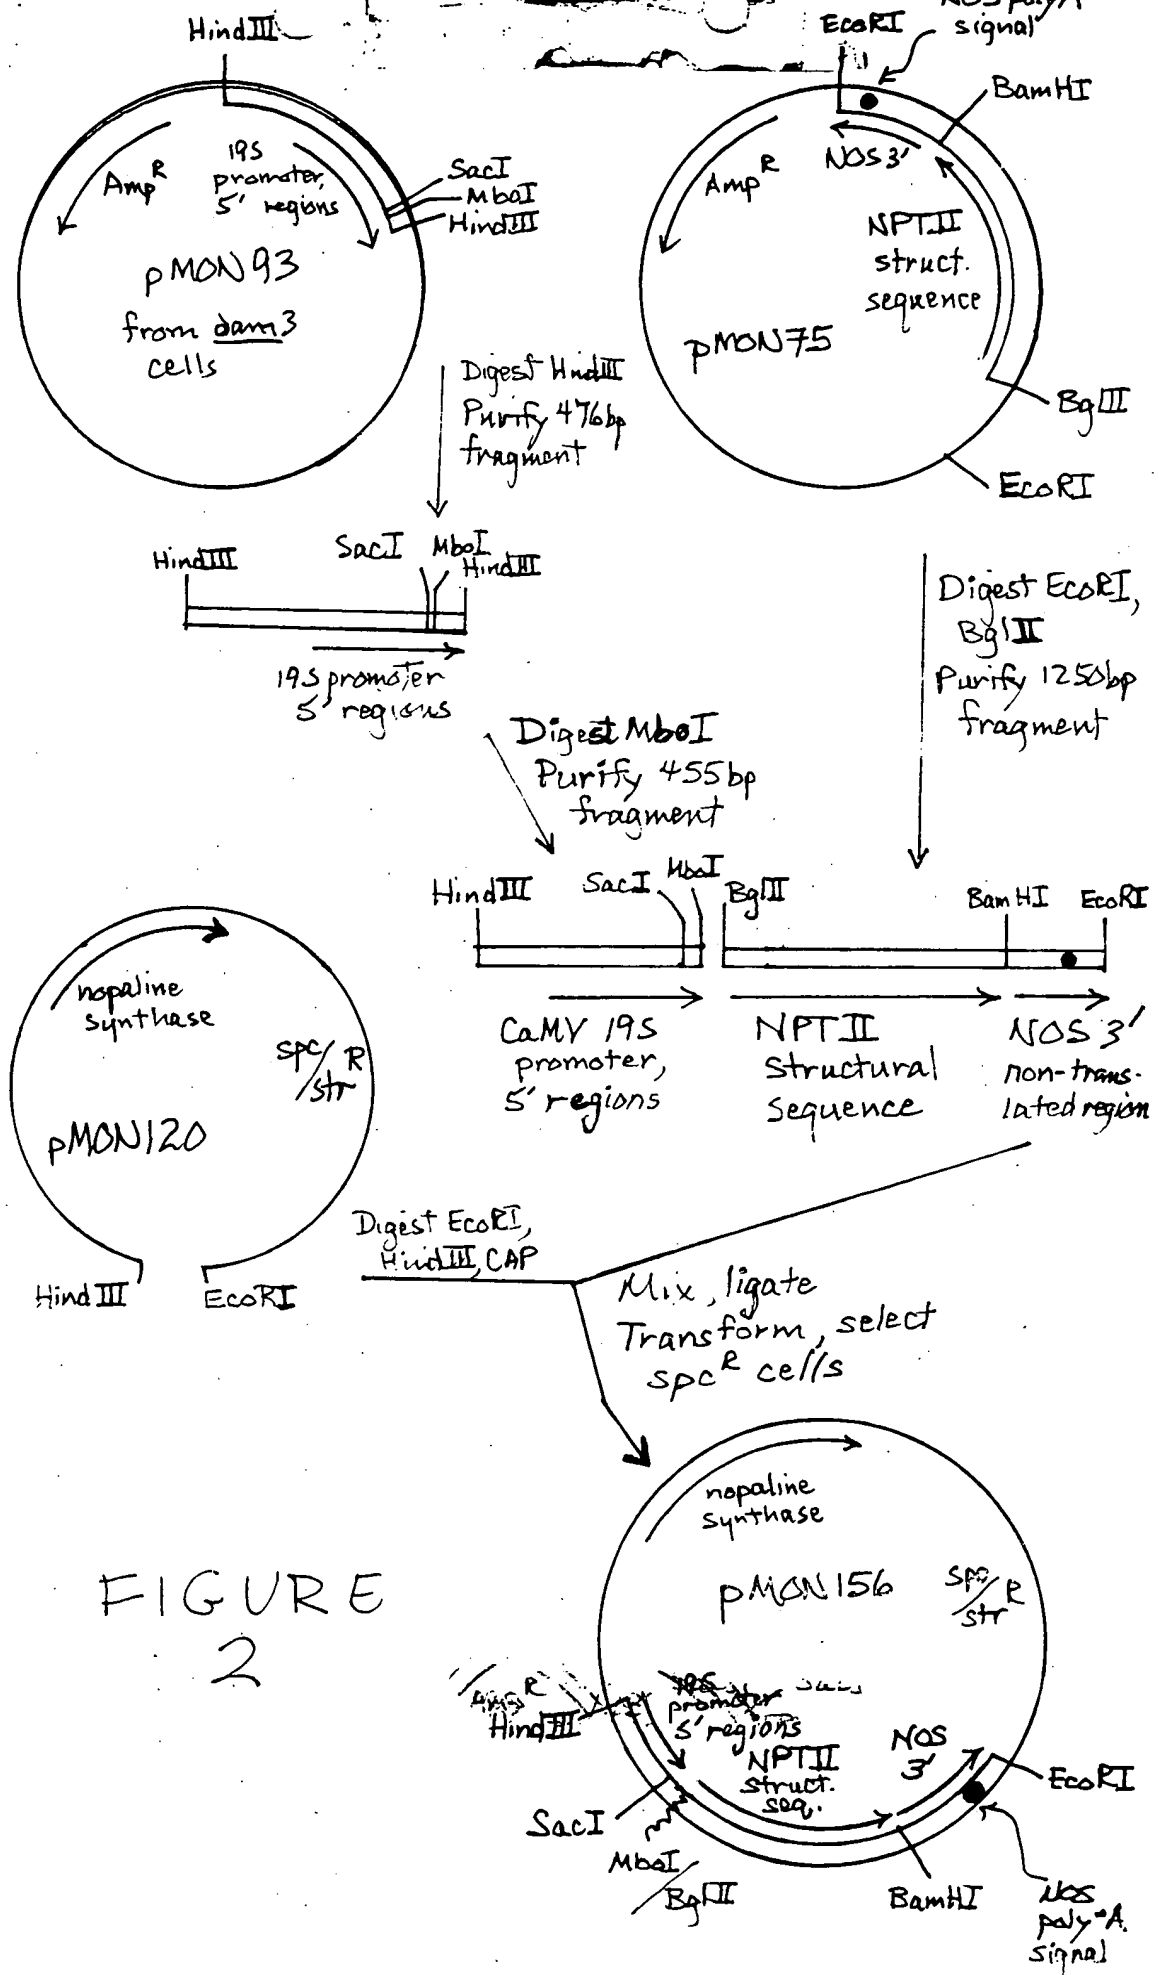 HindIII
Amp R
19S
promoter,
5' regions
SacI
MboI
HindIII
pMON93
from dam3
cells
EcoRI
NOS poly A
signal
BamHI
NOS 3'
Amp R
NPTII
struct.
sequence
pMON75
BglII
EcoRI
Digest HindIII
Purify 476bp
fragment
HindIII
SacI
MboI
HindIII
19S promoter
5' regions
Digest MboI
Purify 455bp
fragment
Digest EcoRI,
BglII
Purify 1250bp
fragment
HindIII
SacI
MboI
BglII
BamHI
EcoRI
CaMV 19S
promoter,
5' regions
NPTII
Structural
Sequence
NOS 3'
non-trans-
lated region
nopaline
synthase
spc/str R
pMON120
HindIII
EcoRI
Digest EcoRI,
HindIII, CAP
Mix, ligate
Transform, select
spc R cells
nopaline
synthase
pMON156
spc/str R
HindIII
promoter
5' regions
NPTII
struct.
seq.
NOS
3'
EcoRI
SacI
MboI
/BglII
BamHI
NOS
poly-A.
signal
FIGURE
2